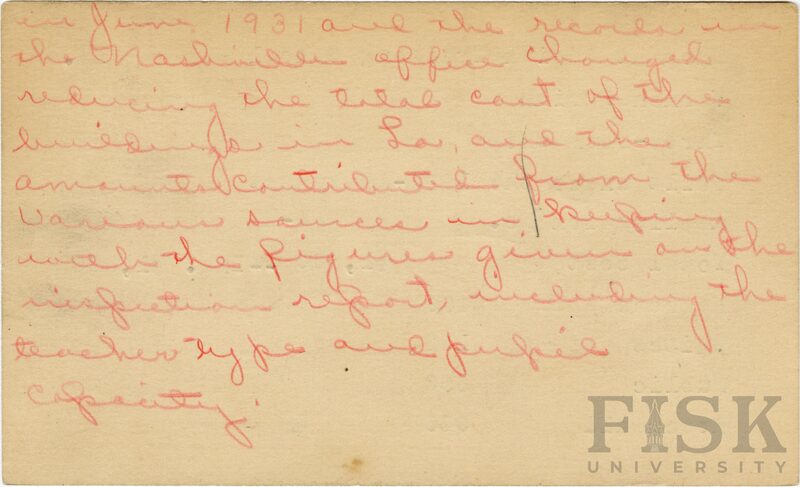 in June 1931 and the records in
the Nashville office changed
reducing the total cost of the
buildings in La, and the
amounts contributed from the
various sources in keeping
with the figures given on the
inspection report, including the
teacher type and pupil
capacity.
FISK
UNIVERSITY